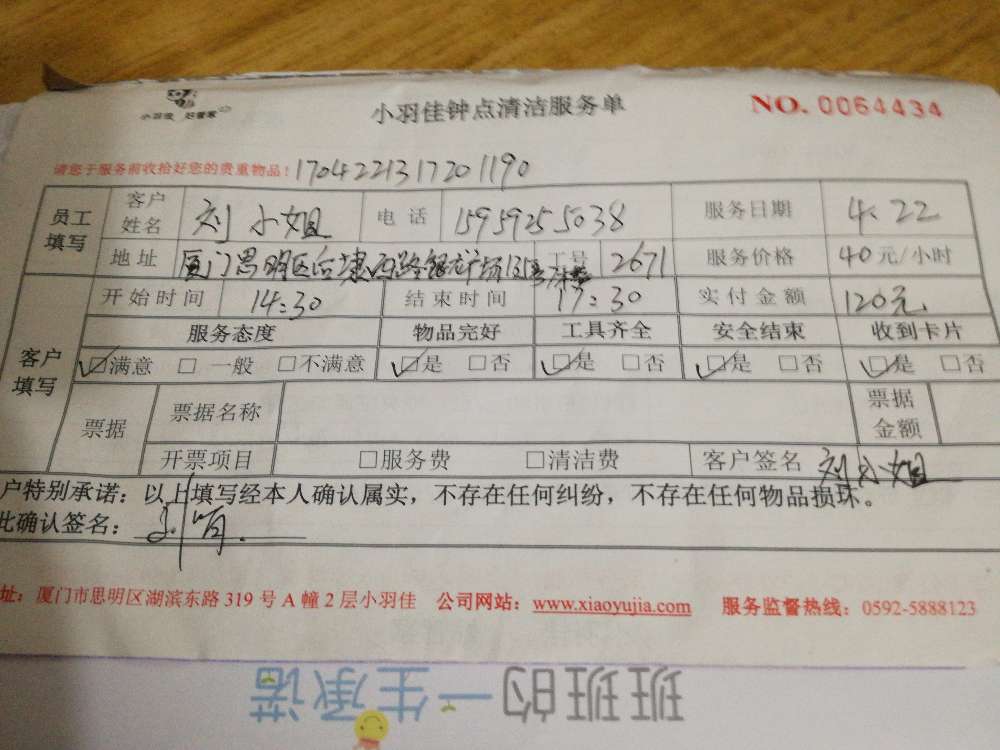 小羽佳 好管家
小羽佳钟点清洁服务单 NO. 0064434
请您于服务前收拾好您的贵重物品! 1704221317201190
员工填写 客户姓名 刘小姐 电话 15959255038 服务日期 4.22
地址 厦门思明区 工号 2671 服务价格 40元/小时
客户填写 开始时间 14:30 结束时间 17:30 实付金额 120元
服务态度 物品完好 工具齐全 安全结束 收到卡片
☑满意 □一般 □不满意 ☑是 □否 ☑是 □否 ☑是 □否 ☑是 □否
票据 票据名称 票据金额
开票项目 □服务费 □清洁费 客户签名 刘小姐
户特别承诺：以上填写经本人确认属实，不存在任何纠纷，不存在任何物品损坏。
此确认签名：
址：厦门市思明区湖滨东路 319 号 A 幢 2 层小羽佳 公司网站：www.xiaoyujia.com 服务监督热线：0592-5888123
班班的一生承诺